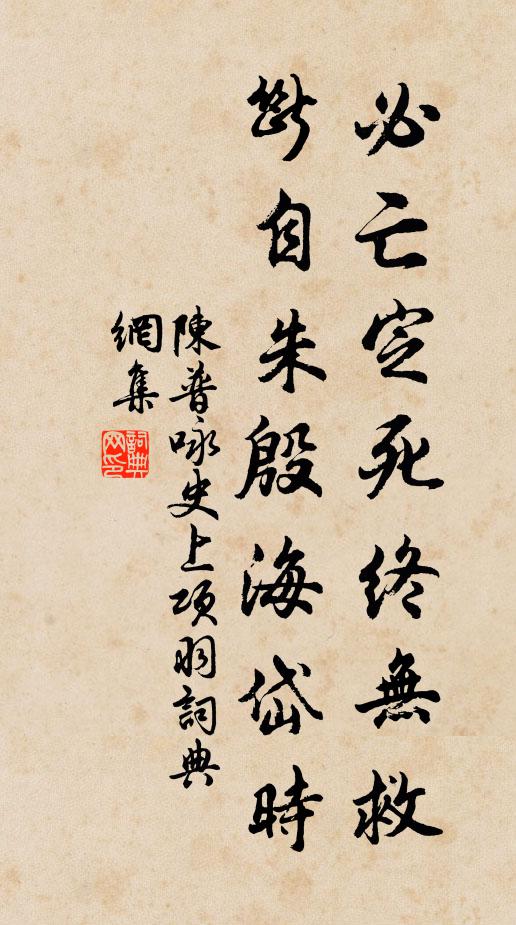 必亡定死終無救
斷自朱殷海岱時
陳普咏史上項羽詞典
網集
詞典
网印